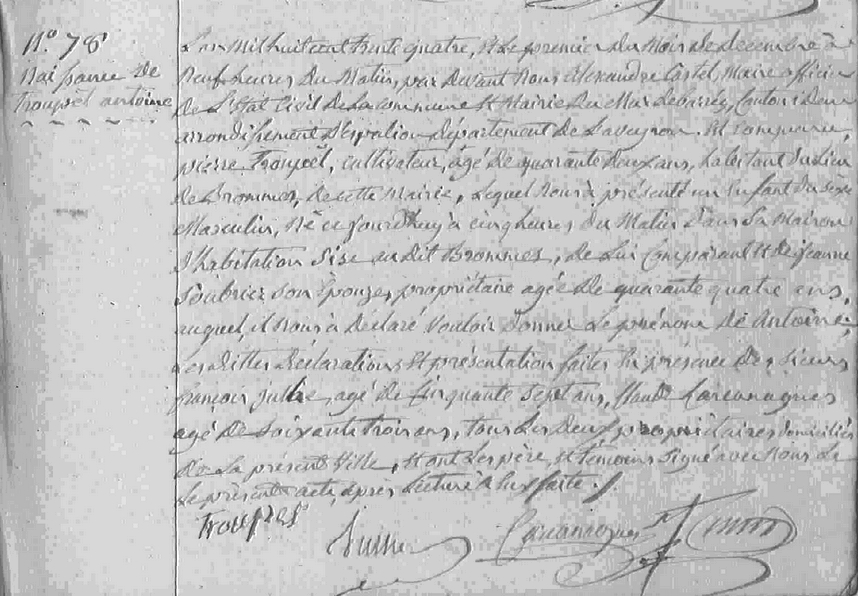 N.º 78
Naissance De
Troupel antoine
L'an Mil huit cent trente quatre, Et Le premier du Mois de decembre à
Neuf heures Du Matin, par Devant Nous Alexandre Costel, Maire officier
De L'Etat Civil De La commune Et Mairie Du Mur debarrés, Canton idem
arrondissement D'Espalion département de Laveyron. Est comparu,
pierre Troupel, cultivateur, agé De quarante deux ans, habitant du lieu
de Brommes, De cette Mairie, Lequel Nous à présenté un Enfant Du Sexe
Masculin, Né ce jourd'huy à cinq heures Du Matin Dans Sa Maison
d'habitation Sise au Dit Brommes, De Lui Comparant Et De jeanne
Soubrier son Epouse, propriétaire agée De quarante quatre ans,
auquel, il Nous à Déclaré Vouloir Donner Le prénom De Antoine,
Les Dittes Déclarations Et présentation faites En présence De sieurs
françois agé De Cinquante Sept ans,
agé De Soixante trois ans, tous Les Deux propriétaires domiciliés
De La présent Ville, Et ont Les père, Et témoins Signé avec Nous
Le présent acte, après Lecture à Eux faite.
Troupel